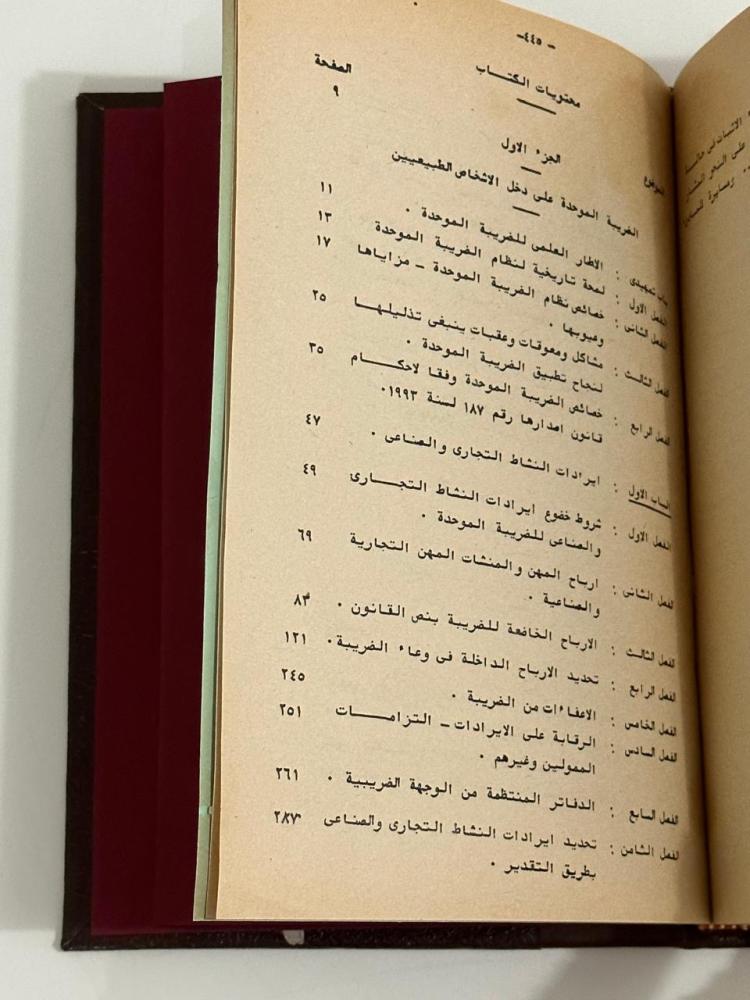 - ٤٤٥ -
محتويات الكتاب
الموضوع الصفحة
٩
الجزء الاول
الضريبة الموحدة على دخل الاشخاص الطبيعيين
باب تمهيدى : الاطار العلمى للضريبة الموحدة . ١١
الفصل الاول : لمحة تاريخية لنظام الضريبة الموحدة ١٣
الفصل الثانى : خصائص نظام الضريبة الموحدة - مزاياها ١٧
وعيوبها .
الفصل الثالث : مشاكل ومعوقات وعقبات ينبغى تذليلها ٢٥
لنجاح تطبيق الضريبة الموحدة .
الفصل الرابع : خصائص الضريبة الموحدة وفقا لاحكام ٣٥
قانون اصدارها رقم ١٨٧ لسنة ١٩٩٣.
الباب الاول : ايرادات النشاط التجارى والصناعى . ٤٧
الفصل الاول : شروط خضوع ايرادات النشاط التجارى ٤٩
والصناعى للضريبة الموحدة .
الفصل الثانى : ارباح المهن والمنشات المهن التجارية ٦٩
والصناعية .
الفصل الثالث : الارباح الخاضعة للضريبة بنص القانون . ٨٣
الفصل الرابع : تحديد الارباح الداخلة فى وعاء الضريبة . ١٢١
الفصل الخامس : الاعفاءات من الضريبة . ٢٤٥
الفصل السادس : الرقابة على الايرادات - التزامات ٢٥١
الممولين وغيرهم .
الفصل السابع : الدفاتر المنتظمة من الوجهة الضريبية . ٢٦١
الفصل الثامن : تحديد ايرادات النشاط التجارى والصناعى ٢٨٧
بطريق التقدير .
الاثبات فى حالة
على النحو